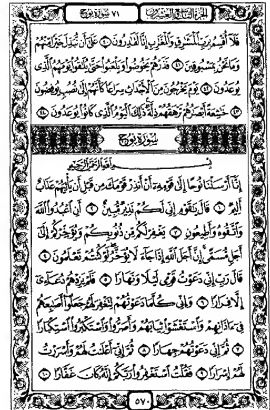 الجزء التاسع والعشرون ٧١ سورة نوح
فَلَا أُقْسِمُ بِرَبِّ الْمَشَارِقِ وَالْمَغَارِبِ إِنَّا لَقَادِرُونَ ٤٠ عَلَى أَن نُّبَدِّلَ خَيْرًا مِّنْهُمْ
وَمَا نَحْنُ بِمَسْبُوقِينَ ٤١ فَذَرْهُمْ يَخُوضُوا وَيَلْعَبُوا حَتَّى يُلَاقُوا يَوْمَهُمُ الَّذِى
يُوعَدُونَ ٤٢ يَوْمَ يَخْرُجُونَ مِنَ الْأَجْدَاثِ سِرَاعًا كَأَنَّهُمْ إِلَى نُصُبٍ يُوفِضُونَ
٤٣ خَاشِعَةً أَبْصَارُهُمْ تَرْهَقُهُمْ ذِلَّةٌ ذَلِكَ الْيَوْمُ الَّذِى كَانُوا يُوعَدُونَ ٤٤
سُورَةُ نُوحٍ
بِسْمِ اللَّهِ الرَّحْمَنِ الرَّحِيمِ
إِنَّا أَرْسَلْنَا نُوحًا إِلَى قَوْمِهِ أَنْ أَنذِرْ قَوْمَكَ مِن قَبْلِ أَن يَأْتِيَهُمْ عَذَابٌ
أَلِيمٌ ١ قَالَ يَاقَوْمِ إِنِّى لَكُمْ نَذِيرٌ مُّبِينٌ ٢ أَنِ اعْبُدُوا اللَّهَ
وَاتَّقُوهُ وَأَطِيعُونِ ٣ يَغْفِرْ لَكُم مِّن ذُنُوبِكُمْ وَيُؤَخِّرْكُمْ إِلَى
أَجَلٍ مُّسَمًّى إِنَّ أَجَلَ اللَّهِ إِذَا جَاءَ لَا يُؤَخَّرُ لَوْ كُنتُمْ تَعْلَمُونَ ٤
قَالَ رَبِّ إِنِّى دَعَوْتُ قَوْمِى لَيْلًا وَنَهَارًا ٥ فَلَمْ يَزِدْهُمْ دُعَائِى
إِلَّا فِرَارًا ٦ وَإِنِّى كُلَّمَا دَعَوْتُهُمْ لِتَغْفِرَ لَهُمْ جَعَلُوا أَصَابِعَهُمْ
فِى ءَاذَانِهِمْ وَاسْتَغْشَوْا ثِيَابَهُمْ وَأَصَرُّوا وَاسْتَكْبَرُوا اسْتِكْبَارًا
٧ ثُمَّ إِنِّى دَعَوْتُهُمْ جِهَارًا ٨ ثُمَّ إِنِّى أَعْلَنتُ لَهُمْ وَأَسْرَرْتُ
لَهُمْ إِسْرَارًا ٩ فَقُلْتُ اسْتَغْفِرُوا رَبَّكُمْ إِنَّهُ كَانَ غَفَّارًا ١٠
٥٧٠